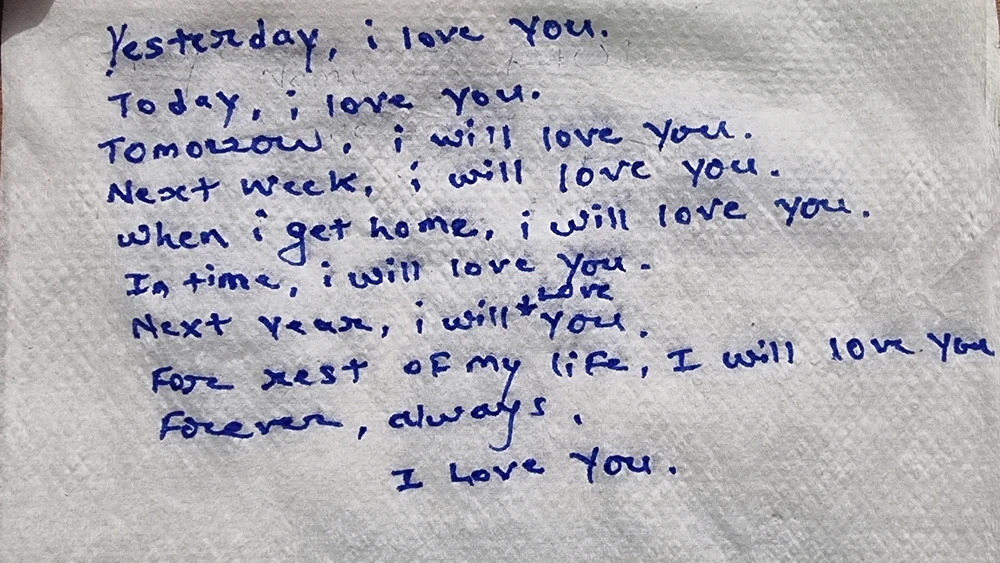 Yesterday, i love you.
Today, i love you.
Tomorrow, i will love you.
Next week, i will love you.
When i get home, i will love you.
In time, i will love you.
Love
Next year, i will * you.
For rest of my life, I will love you
Forever, always.
I Love You.